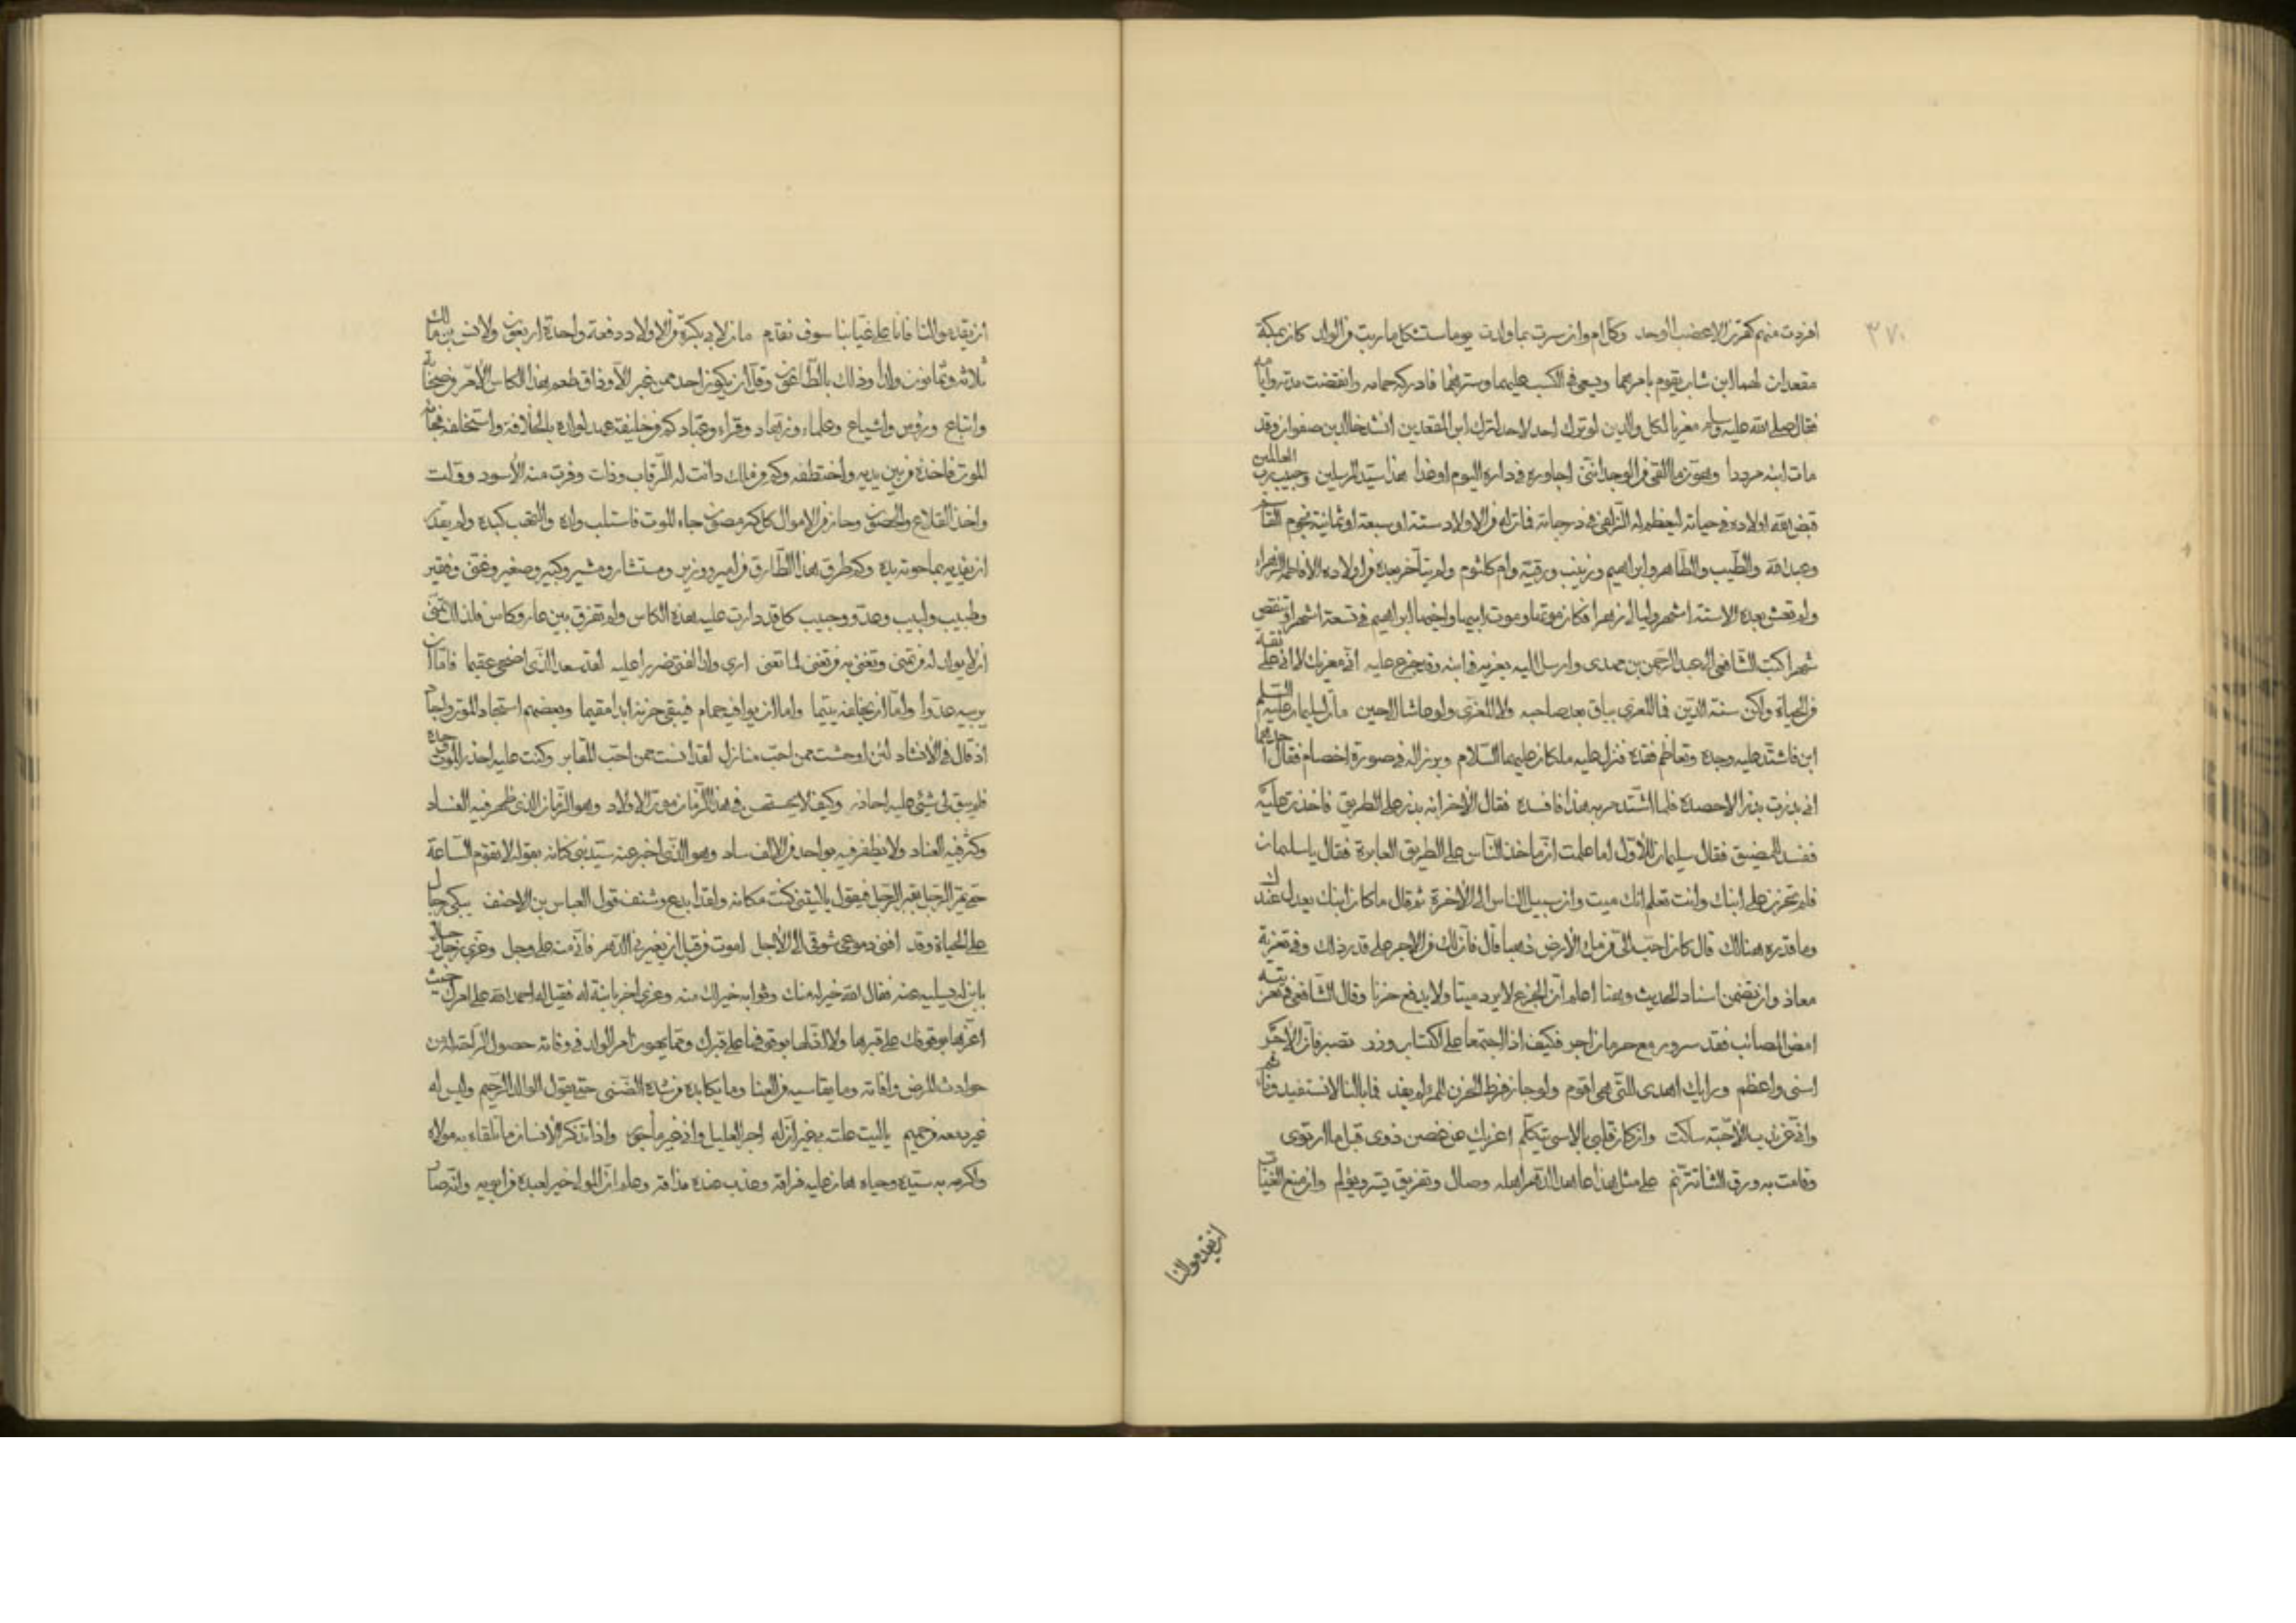 ٣٧٠
افردت منهم كقرن الاعضب الوحد وكل ام وان سرت بما ولدت يوما ستثكل ما ربت من الولد كان بمكة
مقعدان لهما ابن شاب يقوم بامرهما ويسعى في الكسب عليهما وسترهما فادركه حمامه وانقضت مدته وايامه
فقال صلى الله عليه وسلم معزيا لكل والدين لو ترك احد لاحد لترك ابن المقعدين انشد خالد بن صفوان وقد
مات ابنه مرددا وهون ما القى من الوجد انني اجاوره في داره اليوم او غدا هذا سيد المرسلين وحبيب رب العالمين
قبض الله اولاده في حياته ليعظم له الزلفى في درجاته فمات له من الاولاد ستة او سبعة او ثمانية نجوم القاسم
وعبد الله والطيب والطاهر وابراهيم وزينب ورقية وام كلثوم ولم يتأخر بعده من اولاده الا فاطمة الزهراء
ولم تعش بعده الا ستة اشهر وليال زهرا فكان موتها وموت ابيها واخيها ابراهيم في تسعة اشهر او تنقص
شهرا كتب الشافعي الى عبد الرحمن بن مهدي وارسل اليه يعزيه في ابنه وقد جزع عليه اني معزيك لا اني على ثقة
من الحياة ولكن سنة الدين فما المعزى بباق بعد صاحبه ولا المعزي ولو عاشا الى حين مات لسليمان عليه السلم
ابن فاشتد عليه وجده وتعاظم فقده فنزل عليه ملكان عليهما السلام وبرزا له في صورة اخصام فقال احدهما
اني بذرت بذرا لاحصده فلما اشتد مر به هذا فافسده فقال الآخر انه بذر على الطريق فاخذت عليه
ففسد للمضيق فقال سليمان للاول اما علمت ان مأخذ الناس على الطريق العابرة فقال يا سليمان
فلم تحزن على ابنك وانت تعلم انك ميت وان سبيل الناس الى الآخرة ثم قال ما كان ابنك يعدل عندك
وما قدره هنالك قال كان احب الي من ملء الارض ذهبا قال فان لك من الاجر على قدر ذلك وفي تعزية
معاذ وان تضمن اسناد الحديث وهنا اعلم ان الجزع لا يرد ميتا ولا يدفع حزنا وقال الشافعي في تعزيته
امض المصائب فقد سرور مع حرمان اجر فكيف اذا اجتمعا على اكتساب وزر تصبر فان الاجر
اسنى واعظم ورايك اهدى للتي هي اقوم ولو جاز فرط الحزن للمرء لم يفد فما بالنا لا نستفيد ونأثم
واني عن ندب الاحبة ساكت وان كان قلبي بالاسى يتكلم اعزيك عن غصن ذوى قبل ما ارتوى
وقامت به ورق الثنا تترنم على مثل هذا عاهد الدهر اهله وصال وتفريق يسر ويؤلم وان منع الغياب
ان يقدموا لنا
ان يقدموا لنا فانا على غيابنا سوف نقدم مات لابي بكرة من الاولاد دفعة واحدة اربعون ولانس بن مالك
ثلاثة وثمانون ولدا وذلك بالطاعون وقل ان يكون احد ممن غبر الا وذاق طعم هذا الكاس الامر وضجحا
واتباع ورؤس واشياع وعلماء وزهاد وقراء وعباد كم من خليفة عهد لولده بالخلافة واستخلفه فجاءه
الموت فاخذه من بين يديه واختطفه وكم من ملك دانت له الرقاب وذلت وفرت منه الاسود وولت
واخذ القلاع والحصون وحاز من الاموال كل كنز مصون جاء الموت فاستلب ولده والتهب كبده ولم يقدر
ان يفديه بما حوته يده وكم طرق هذا الطارق من امير ووزير ومستشار ومشير وكبير وصغير وغني وفقير
وطبيب ولبيب وعدو وحبيب كل قد دارت عليه هذه الكاس ولم تفرق بين عار وكاس ولذلك تمنى
ان لا يولد له من تمنى وتغنى به من تغنى لما تعنى ارى ولد الفتى ضررا عليه لقد سعد الذي اضحى عقيما فاما ان
يربيه عدوا واما ان يخلفه يتيما واما ان يوافيه حمام فيبقى حزنه ابدا مقيما وبعضهم استجاد الموت واجاد
اذ قال في الانشاد لئن اوحشت ممن احب منازل لقد انست ممن احب المقابر وكنت عليه احذر الموت وحده
فلم يبق لي شيئ عليه احاذر وكيف لا يستحب في هذا الزمان موت الاولاد وهو الزمان الذي ظهر فيه الفساد
وكثر فيه العناد ولا يظفر فيه بواحد من الالف ساد وهو الذي اخبر عنه سيد بني كنانه بقوله لا تقوم الساعة
حتى يمر الرجل بقبر الرجل فيقول يا ليتني كنت مكانه ولقد ابدع وشنف قول العباس بن الاحنف يبكي رجال
على الحياة وقد افنى دموعي شوقي الى الاجل اموت من قبل ان يغيرني الدهر فاني منه على وجل وعزى رجل رجلا
بابن له يسليه عنه فقال الله خير له منك وثوابه خير لك منه وعزى اخر بابنة له فقيل له احمد الله على امرك حيث
اعزها بوقوفك على قبرها ولا اذلها بوقوفها على قبرك ومما يهون امر الولد في وفاته حصول الراحة له من
حوادث المرض وافاته وما يقاسيه من العنا وما يكابده من شدة الضنى حتى يقول الوالد الرحيم وليس له
غير دمعه من حميم يا ليت علته بي غير ان له اجر العليل واني غير مأجور واذا تذكر الانسان ما تلقاه به مولاه
واكرمه به سيده وحياه هان عليه فراقه وعذب عنده مذاقه وعلم ان المولى خير لعبده من ابويه وانه صار